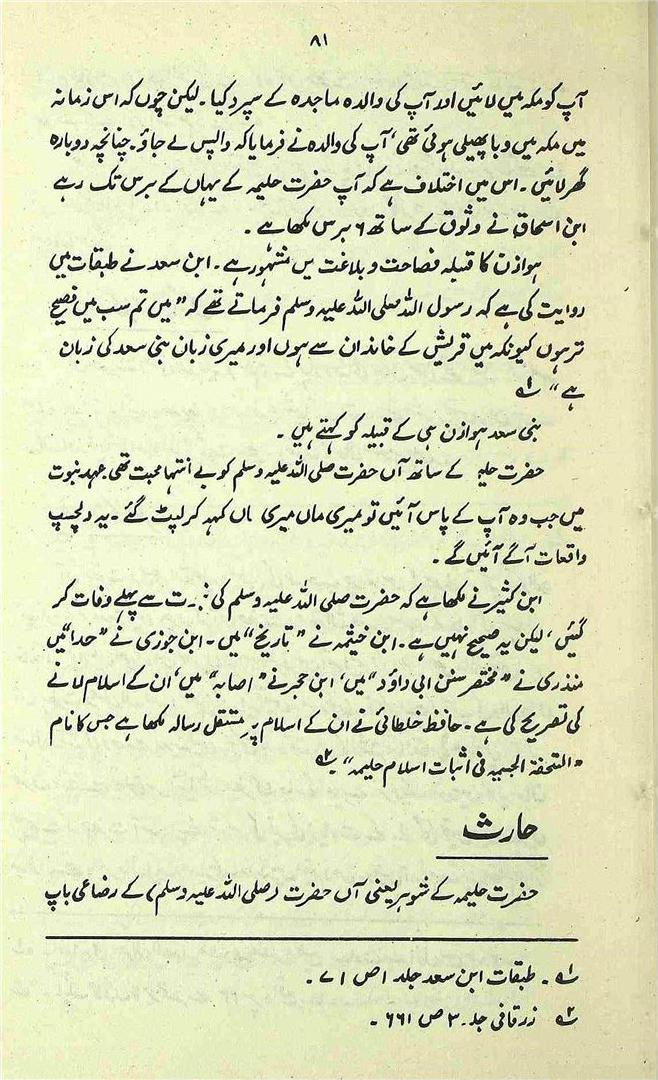 ۸۱
آپ کو مکہ میں لائیں اور آپ کی والدہ ماجدہ کے سپرد کیا۔ لیکن چوں کہ اس زمانہ
میں مکہ میں وبا پھیلی ہوئی تھی، آپ کی والدہ نے فرمایا کہ واپس لے جاؤ۔ چنانچہ دوبارہ
گھر لائیں۔ اس میں اختلاف ہے کہ آپ حضرت حلیمہ کے یہاں کے برس تک رہے
ابن اسحاق نے وثوق کے ساتھ ۶ برس لکھا ہے۔
ہوازن کا قبیلہ فصاحت و بلاغت میں مشہور ہے۔ ابن سعد نے طبقات میں
روایت کی ہے کہ رسول اللہ صلی اللہ علیہ وسلم فرماتے تھے کہ "میں تم سب میں فصیح
تر ہوں کیونکہ میں قریش کے خاندان سے ہوں اور میری زبان بنی سعد کی زبان
ہے" ؎۱
بنی سعد ہوازن ہی کے قبیلہ کو کہتے ہیں۔
حضرت حلیمہ کے ساتھ آں حضرت صلی اللہ علیہ وسلم کو بے انتہا محبت تھی۔ عہد نبوت
میں جب وہ آپ کے پاس آئیں تو میری ماں میری ماں کہہ کر لپٹ گئے۔ یہ دلچسپ
واقعات آگے آئیں گے۔
ابن کثیر نے لکھا ہے کہ حضرت صلی اللہ علیہ وسلم کی ت سے پہلے وفات کر
گئیں، لیکن یہ صحیح نہیں ہے۔ ابن خیثمہ نے "تاریخ" میں۔ ابن جوزی نے "حدا" میں
منذری نے "مختصر سنن ابی داؤد" میں، ابن حجر نے "اصابہ" میں، ان کے اسلام لانے
کی تصریح کی ہے۔ حافظ خلطائی نے ان کے اسلام پر مستقل رسالہ لکھا ہے جس کا نام
"التحفۃ الجسیمہ فی اثبات اسلام حلیمہ"۔ ؎۲
حارث
حضرت حلیمہ کے شوہر یعنی آں حضرت (صلی اللہ علیہ وسلم) کے رضاعی باپ
؎۱۔ طبقات ابن سعد جلد ۱ ص ۷۱۔
؎۲ زرقانی جلد ۳ ص ۶۶۱۔